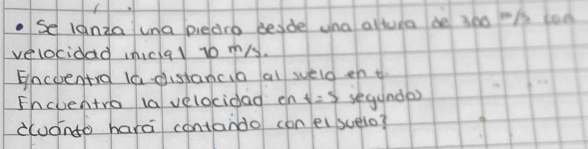 • Se lanza una piedra desde una altura de 300 m/s con
velocidad inicial 10 m/s.
Encuentra la distancia al suelo en t
Encuentra la velocidad en t=5 segundos
¿Cuándo hará contando con el suelo?